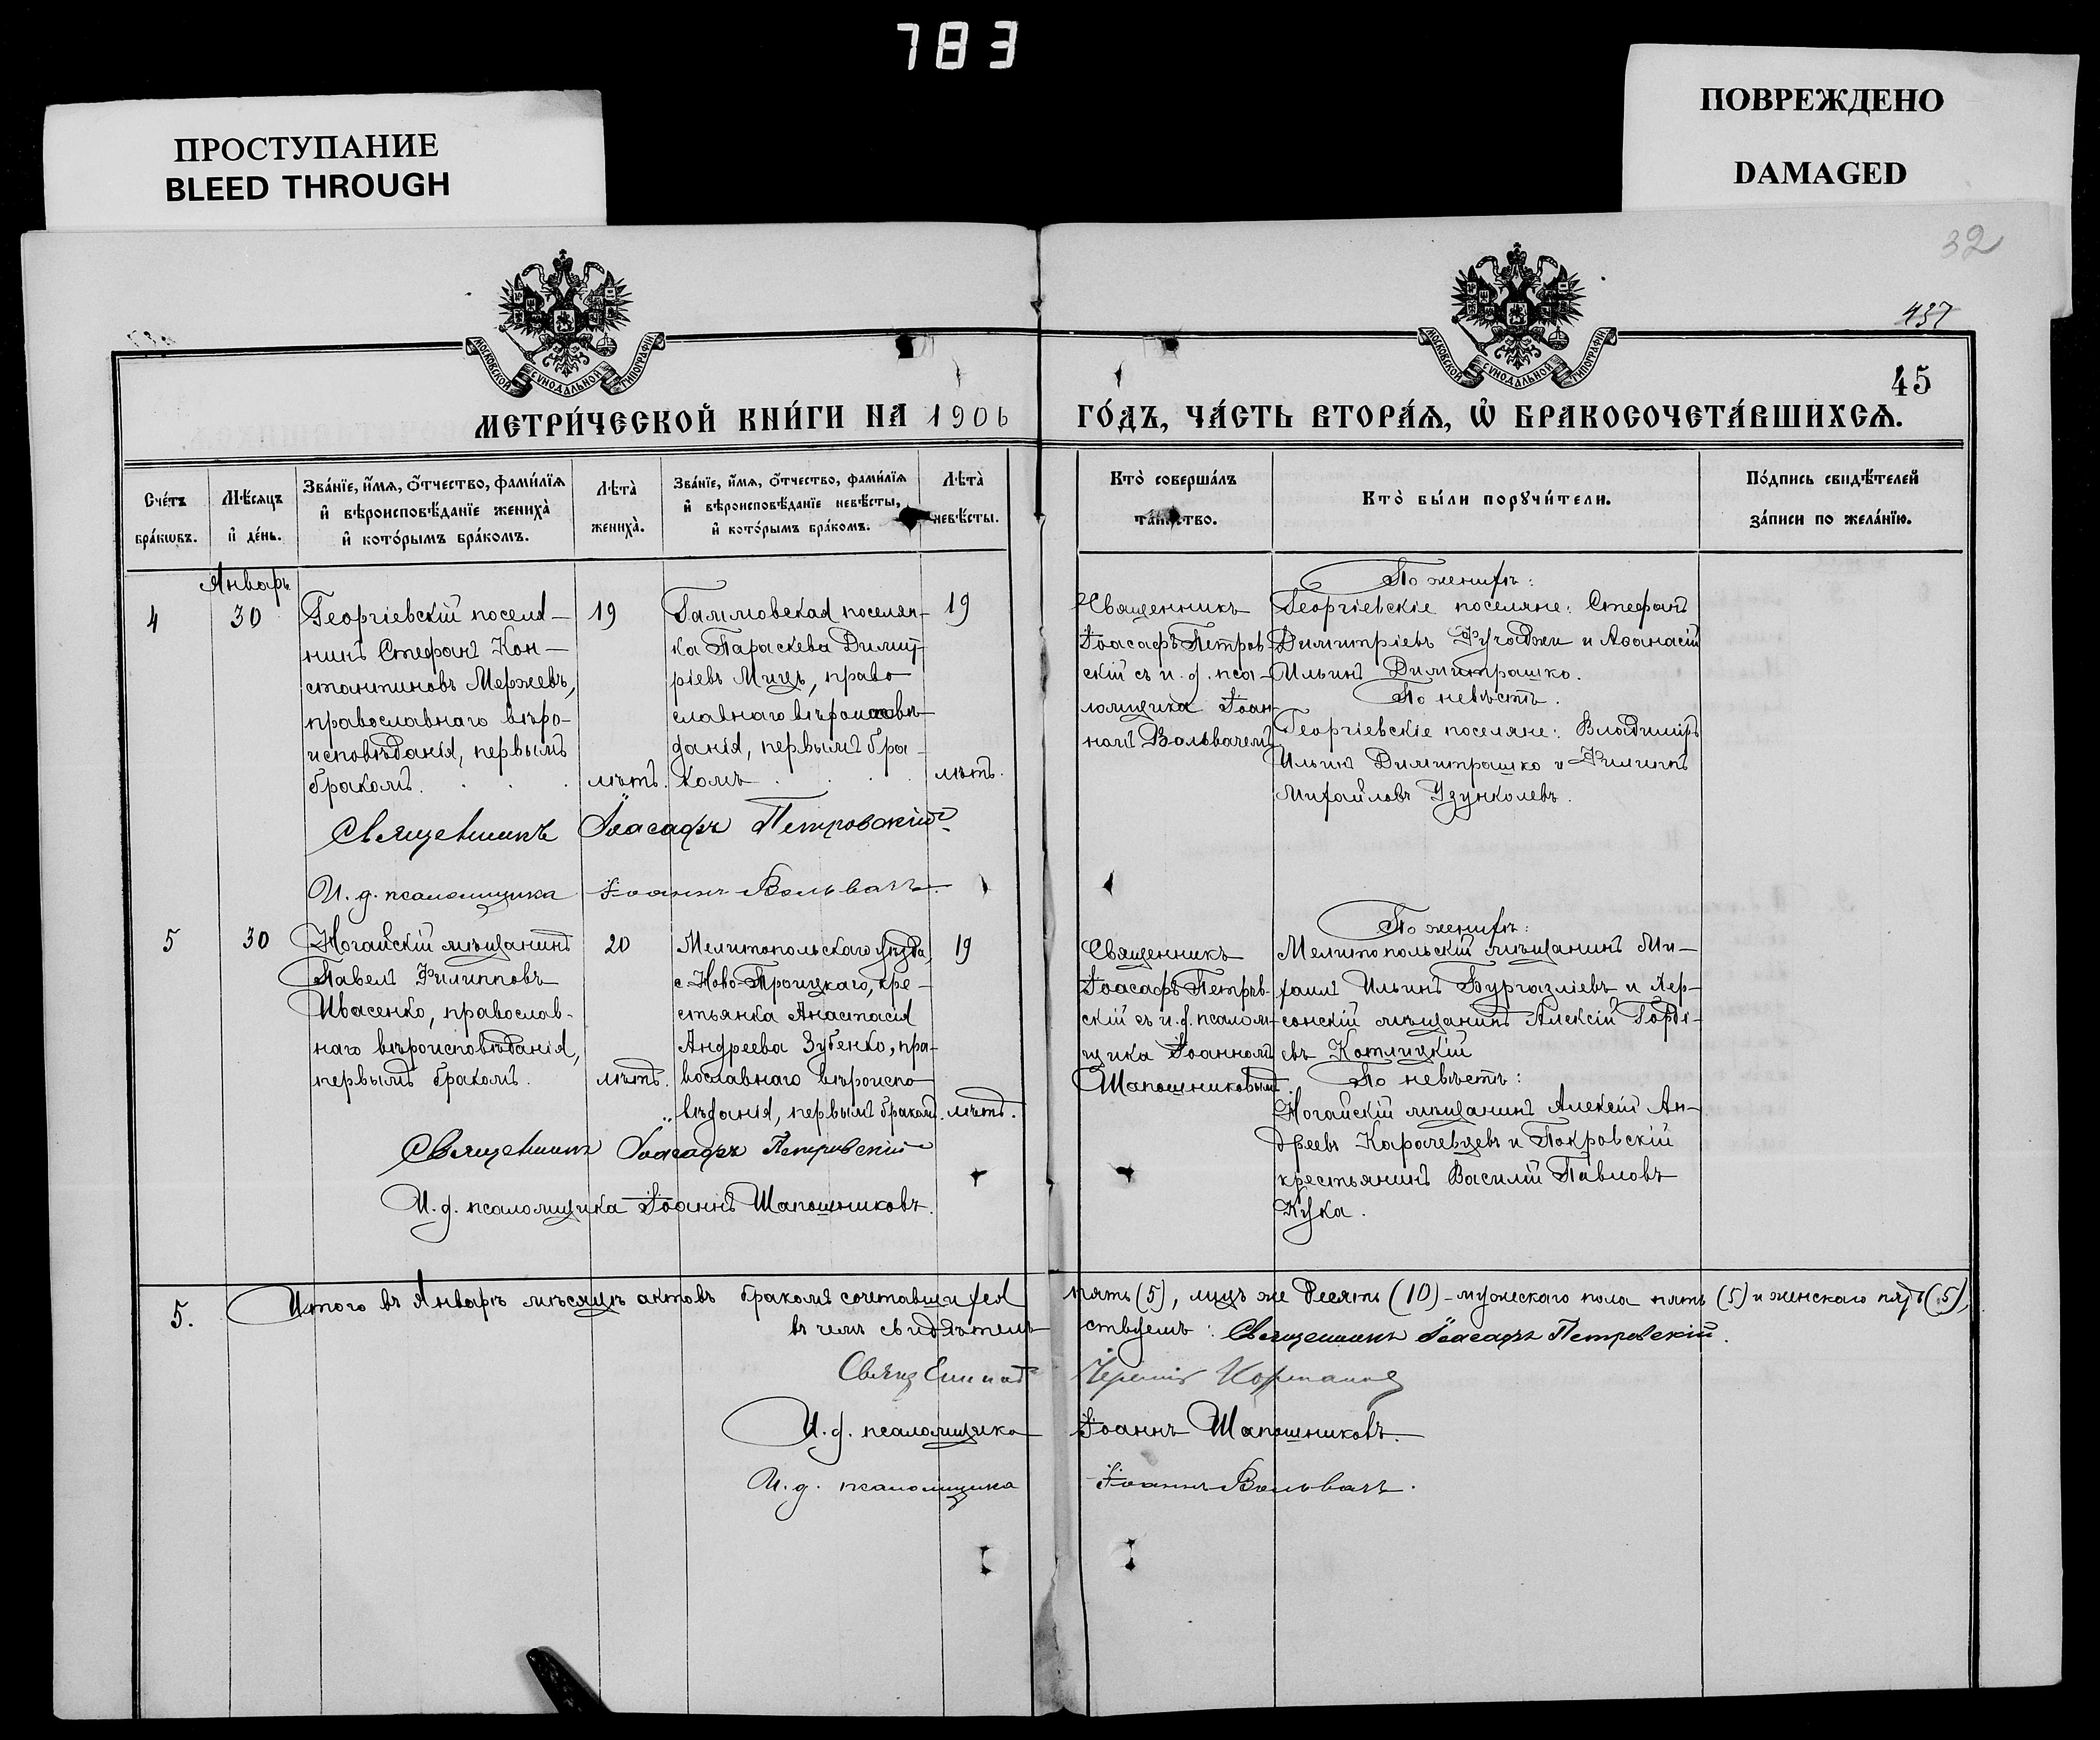 783
ПРОСТУПАНИЕ
BLEED THROUGH
ПОВРЕЖДЕНО
DAMAGED
32
457
45
МОСКОВСКОЙ СѴНОДАЛЬНОЙ ТИПОГРАФІИ
МОСКОВСКОЙ СѴНОДАЛЬНОЙ ТИПОГРАФІИ
МЕТРИ́ЧЕСКОЙ КНИ́ГИ НА 1906 ГО́ДЪ, ЧА́СТЬ ВТОРА́Ѧ, Ѡ҆ БРАКОСОЧЕТА́ВШИХСѦ.
Сче́тъ
бра́кѡвъ.
Мѣ́сяцъ
и҆ де́нь.
Зва́нїе, и҆́мѧ, ѻ҆́тчество, фами́лїѧ
и҆ вѣроисповѣ́данїе жениха̀
и҆ кото́рымъ бра́комъ.
Лѣта̀
жениха̀.
Зва́нїе, и҆́мѧ, ѻ҆́тчество, фами́лїѧ
и҆ вѣроисповѣ́данїе невѣ́сты,
и҆ кото́рымъ бра́комъ.
Лѣта̀
невѣ́сты.
Кто̀ соверша́лъ
та́инство.
Кто̀ бы́ли порꙋчи́тели.
По́дпись свидѣ́телей
за́писи по жела́нїю.
Январь
4
30
Георгіевскій поселя-
нинъ Стефанъ Кон-
стантиновъ Мержевъ,
православнаго вѣро-
исповѣданія, первымъ
бракомъ.
19
лѣтъ.
поселян-
ка Параскева Димит-
ріевъ Мицъ, право
славнаго вѣроисповѣ-
данія, первымъ бра-
комъ
19
лѣтъ.
Священникъ
Іоасафъ Петров-
скій съ и. д. пса-
ломщика Іоан-
номъ Вольвачемъ
По женихѣ:
Георгіевскіе поселяне: Стефанъ
Димитріевъ Фучаджи и Аѳанасій
Ильинъ Димитрашко.
По невѣстѣ.
Георгіевскіе поселяне: Владиміръ
Ильинъ Димитрашко и Филиппъ
Михайловъ Узунколевъ.
Священникъ Іоасафъ Петровскій
И. д. псаломщика Іоаннъ Вольвачъ.
5
30
Ногайскій мѣщанинъ
Павелъ Филипповъ
Ивасенко, православ-
наго вѣроисповѣданія,
первымъ бракомъ.
20
лѣтъ.
Мелитопольскаго уѣзда,
с. Ново-Троицкаго, кре-
стьянка Анастасія
Андреева Зубенко, пра-
вославнаго вѣроиспо
вѣданія, первымъ бракомъ.
19
лѣтъ.
Священникъ
Іоасафъ Петров-
скій съ и. д. псалом-
щика Іоанномъ
Шапошниковым.
По женихѣ:
Мелитопольскій мѣщанинъ Ми-
хаилъ Ильинъ Бургазліевъ и Хер-
сонскій мѣщанинъ Алексій Горді-
евъ Котлицкій
По невѣстѣ:
Ногайскій мѣщанинъ Алексѣй Ан-
дреевъ Карачевцевъ и Покровскій
крестьянинъ Василій Павловъ
Кука.
Священникъ Іоасафъ Петровскій
И. д. псаломщика Іоаннъ Шапошниковъ.
5.
Итого въ Январѣ мѣсяцѣ актовъ бракомъ сочетавшихся пять (5), лицъ же десять (10) - мужескаго пола пять (5) и женскаго пять (5),
въ чемъ свидѣтельствуемъ: Священникъ Іоасафъ Петровскій.
Священникъ
И. д. псаломщика Іоаннъ Шапошниковъ.
И. д. псаломщика Іоаннъ Вольвачъ.